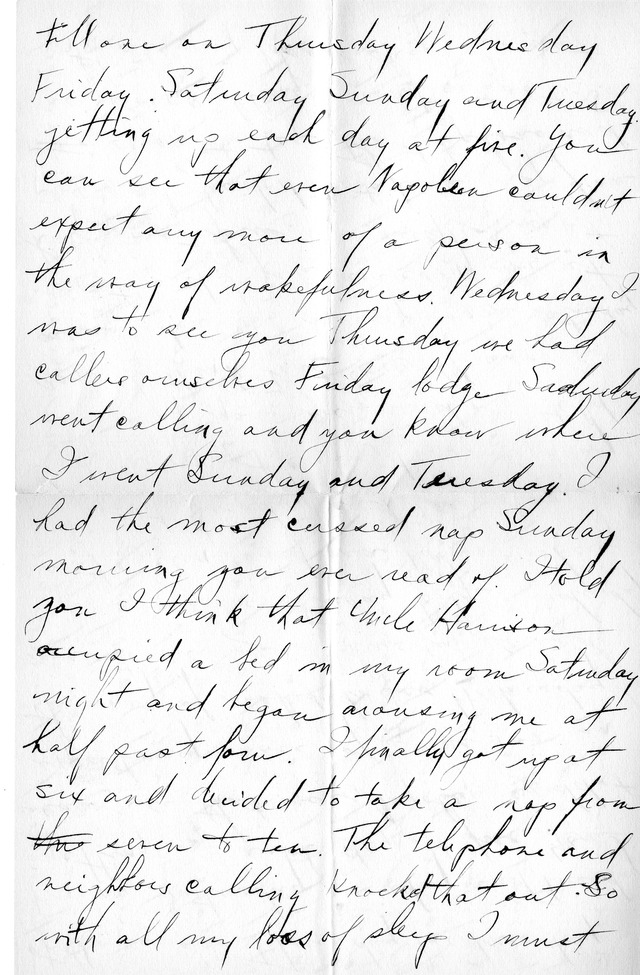 till one on Thursday Wednesday
Friday. Saturday Sunday and Tuesday.
getting up each day at five. You
can see that even Napoleon couldn't
expect any more of a person in
the way of wakefulness. Wednesday I
was to see you Thursday we had
callers ourselves Friday lodge Saturday
went calling and you know where
I went Sunday and Tuesday. I
had the most cussed nap Sunday
morning you ever read of. I told
you I think that Uncle Harrison
occupied a bed in my room Saturday
night and began arousing me at
half past four. I finally got up at
six and decided to take a nap from
the seven to ten. The telephone and
neighbors calling knocked that out. So
with all my loss of sleep I must